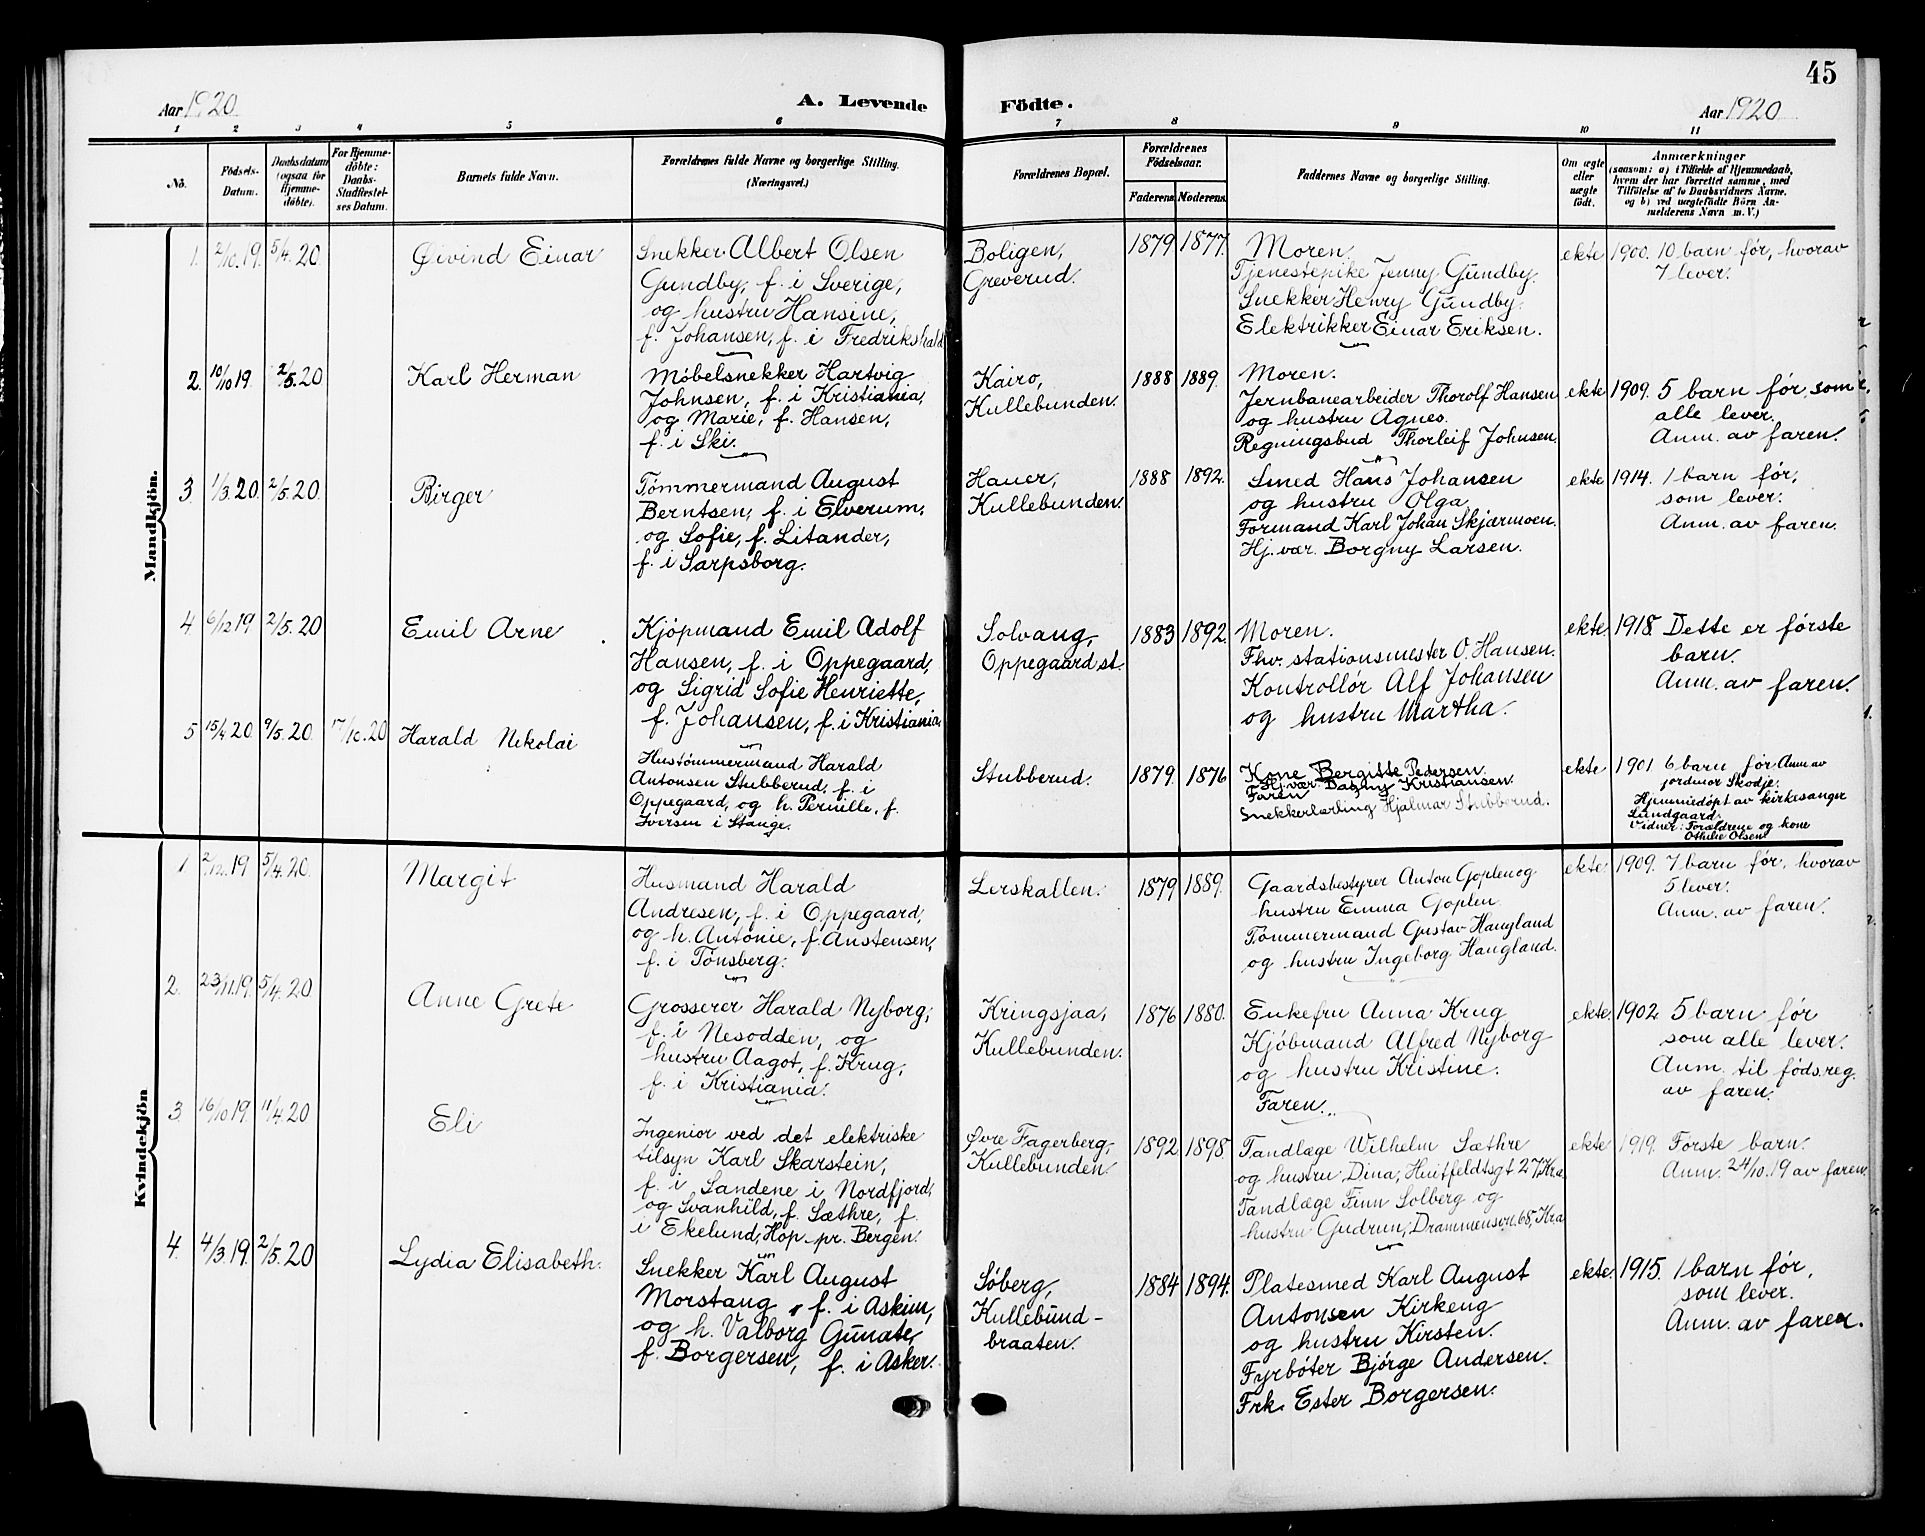 45
Aar 1920
A. Levende Födte.
Aar 1920
1 2 3 4 5 6 7 8 9 10 11
Nö.
Födsels-Datum.
Daabsdatum (ogsaa for Hjemme-döbte).
For Hjemme-döbte: Daabs-Stadfæstel-ses Datum.
Barnets fulde Navn.
Forældrenes fulde Navne og borgerlige Stilling. (Næringsvei.)
Forældrenes Bopæl.
Forældrenes Födselsaar.
Faderens Moderens
Faddernes Navne og borgerlige Stilling.
Om ægte eller uægte födt.
Anmærkninger
(saasom: a) i Tilfælde af Hjemmedaab,
hvem der har forrettet samme, med
Tilföielse af to Daabsvidners Navne,
og b) ved uægtefödte Börn An-
melderens Navn m. V.)
Mandkjön.
1. 2/10.19. 5/4.20 Øivind Einar
Snekker Albert Olsen
Gundby, f. i Sverige,
og hustru Hansine,
f. Johansen, f. i Fredrikshald
Boligen,
Greverud.
1879 1877.
Moren.
Tjenestepike Jenny Gundby.
Snekker Henry Gundby.
Elektrikker Einar Eriksen.
ekte 1900. 10 barn før, hvorav
7 lever.
2. 10/10 19. 2/5.20 Karl Herman
Møbelsnekker Hartvig
Johnsen, f. i Kristiania,
og Marie, f. Hansen,
f. i Ski.
Kairo,
Kullebunden.
1888 1889.
Moren.
Jernbanearbeider Thorolf Hansen
og hustru Agnes.
Regningsbud Thorleif Johnsen.
ekte 1909. 5 barn før, som
alle lever.
Anm. av faren.
3 1/3.20. 2/5.20. Birger
Tømmermand August
Berntsen, f. i Elverum,
og Sofie, f. Litander,
f. i Sarpsborg.
Hauer,
Kullebunden.
1888 1892.
Smed Hans Johansen
og hustru Olga.
Formand Karl Johan Skjærmoen.
Hj.vær. Borgny Larsen.
ekte 1914. 1 barn før,
som lever.
Anm. av faren.
4 6/12 19 2/5.20 Emil Arne
Kjøpmand Emil Adolf
Hansen, f. i Oppegaard,
og Sigrid Sofie Henriette,
f. Johansen, f. i Kristiania.
Solvang,
Oppegaard st.
1883 1892.
Moren.
Fhv. stationsmester O. Hansen.
Kontrollør Alf Johansen
og hustru Martha.
ekte. 1918. Dette er første
barn.
Anm. av faren.
5 15/4 20. 9/5.20. 17/10.20 Harald Nikolai
Hustømmermand Harald
Antonsen Stubberud, f. i
Oppegaard, og h. Pernille, f.
Iversen i Stange.
Stubberud.
1879. 1876
Kone Bergitte Pedersen.
Hj.vær. Dagny Kristiansen.
Faren
Snekkerlærling Hjalmar Stubberud.
ekte 1901 6 barn før Anm av
jordmor Skodje.
Hjemmedøpt av kirkesanger
Lundgaard.
Vidner: Forældrene og kone
Othilie Olsen
Kvindekjön
1 2/12.19 5/4.20. Margit
Husmand Harald
Andresen, f. i Oppegaard,
og h. Antonie, f. Anstensen,
f. i Tønsberg.
Lerskallen.
1879 1889.
Gaardsbestyrer Anton Goplen og
hustru Emma Goplen.
Tømmermand Gustav Haugland
og hustru Ingeborg Haugland.
ekte 1909. 7 barn før, hvorav
5 lever.
Anm. av faren.
2. 23/11.19. 5/4.20 Anne Grete
Grosserer Harald Nyborg,
f. i Nesodden, og
hustru Aagot, f. Krug,
f. i Kristiania.
Kringsjaa,
Kullebunden.
1876 1880.
Enkefru Anna Krug
Kjøbmand Alfred Nyborg
og hustru Kristine.
Faren.
ekte. 1902. 5 barn før
som alle lever.
Anm. til føds.reg.
av faren.
3 16/10 19. 11/4.20 Eli
Ingeniør ved det elektriske
tilsyn Karl Skarstein,
f. i Sandene i Nordfjord,
og Svanhild, f. Sæthre, f.
i Ekelund, Hop pr. Bergen.
Øvre Fagerberg,
Kullebunden.
1892 1898
Tandlæge Wilhelm Sæthre
og hustru Dina, Huitfeldtsgt 27, Kra.
Tandlæge Finn Solberg og
hustru Gudrun, Drammensvn. 68, Kra
ekte 1919. Første barn.
Anm. 24/10.19 av faren.
4. 4/3.19. 2/5.20 Lydia Elisabeth.
Snekker Karl August
Morstang, f. i Askim,
og h. Valborg Gunate,
f. Borgersen, f. i Asker.
Søberg,
Kullebund-
braaten.
1884 1894.
Platesmed Karl August
Antonsen Kirkeng
og hustru Kirsten.
Fyrbøter Bjørge Andersen.
Frk. Ester Borgersen.
ekte. 1915. 1 barn før,
som lever.
Anm. av faren.